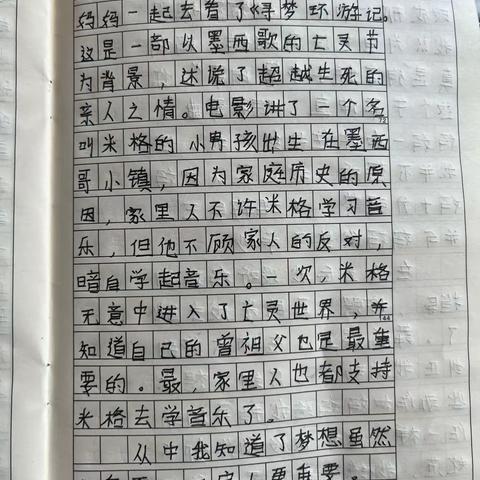 妈妈一起去看了《寻梦环游记。
这是一部以墨西歌的亡灵节
为背景，述说了超越生死的
亲人之情。电影讲了一个名
叫米格的小男孩出生在墨西
哥小镇，因为家庭历史的原
因，家里人不许米格学习音
乐，但他不顾家人的反对，
暗自学起音乐。一次，米格
无意中进入了亡灵世界，并
知道自己的曾祖父也是最重
要的。最，家里人也都支持
米格去学音乐了。
从中我知道了梦想虽然
家人更重要。